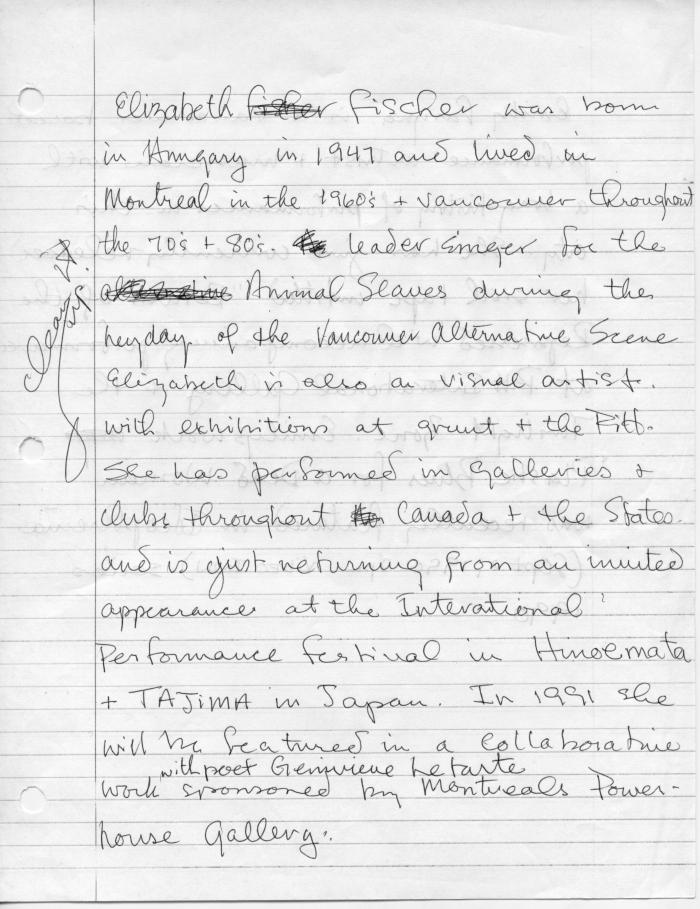 Elizabeth fisher Fischer was born
in Hungary in 1947 and lived in
Montreal in the 1960's + Vancouver throughout
the 70's + 80's. leader singer for the
Animal Slaves during the
heyday of the Vancouver Alternative Scene
Elizabeth is also a visual artist.
with exhibitions at grunt + the Pitt.
She has performed in Galleries +
clubs throughout Canada + the States.
and is just returning from an invited
appearance at the Interational
Performance festival in Hinoemata
+ TAJIMA in Japan. In 1991 she
will be featured in a collaborative
with poet Genivieve Letarte
work sponsored by Montreals Power-
house Gallery.